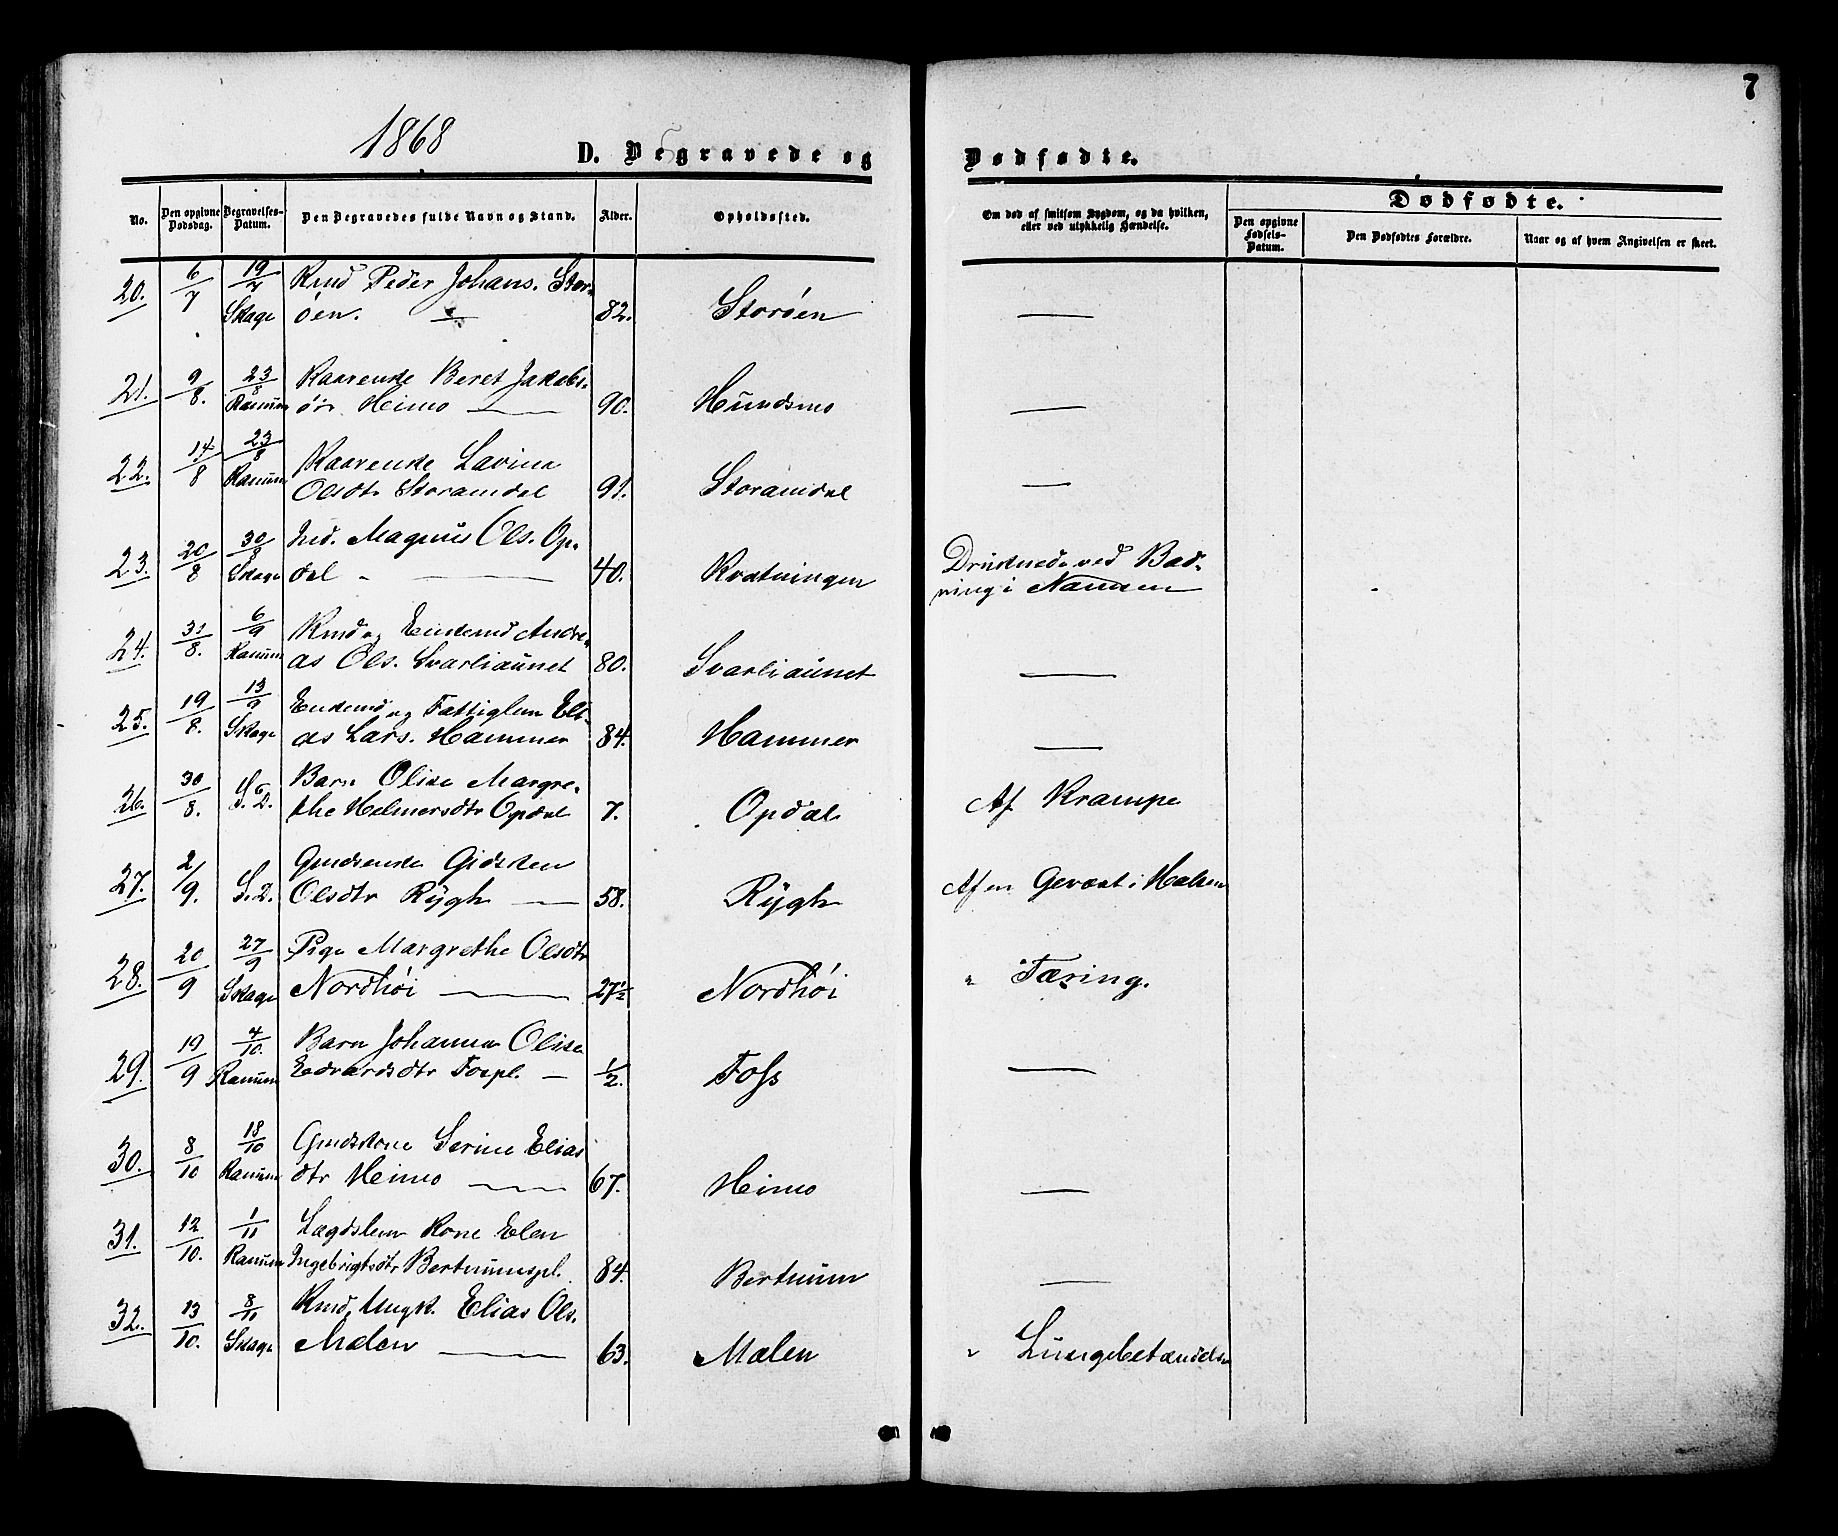 7
1868
D. Begravede og Dødfødte.
No. Den opgivne Dødsdag. Begravelses-Datum. Den Begravedes fulde Navn og Stand. Alder. Opholdssted. Om død af smitsom Sygdom, og da hvilken, eller ved ulykkelig Hændelse.
Dødfødte.
Den opgivne Fødsels-Datum. Den Dødfødtes Forældre. Naar og af hvem Angivelsen er skeet.
20. 6/7 19/7 Skage Kmd Peder Johans. Stor-
øen. 82. Storøen
21. 9/8. 23/8 Ranum Kaarenke Beret Jakobs-
dtr. Heimo 90. Hundsmo
22. 14/8 23/8 Ranum Kaarenke Lavina
Olsdtr Storamdal 91. Storamdal
23. 20/8 30/8 Skage Ind. Magnus Ols. Op-
dal 40. Kvatningen Druknede ved Bad-
ning i Namsen
24. 31/8. 6/9 Ranum Kmd og Enkemd Andre-
as Ols. Svarliaunet 80. Svarliaunet
25. 19/8. 13/9 Skage Enkemd og Fattiglem Eli-
as Lars. Hammer 84. Hammer
26. 30/8. S. D. Barn Olise Margre-
the Helmersdtr Opdal 7. Opdal Af Krampe
27. 2/9. S. D. Gmdsenke Gidsken
Olsdtr Rygh 58. Rygh Af en Gevæxt i Halsen
28. 20/9 27/9 Skage Pige Margrethe Olsdtr
Nordhøi 27½ Nordhøi " Tæring.
29. 19/9 4/10. Ranum Barn Johanna Olise
Edvardsdtr Fospl. ½. Foss
30. 8/10 18/10 Ranum Gmdskone Serine Elias
dtr Heimo 67. Heimo
31. 12/10. 1/11 Ranum Lægdslem Kone Elen
Ingebrigtsdtr Bertnumspl. 84. Bertnum
32. 13/10. 8/11 Skage Kmd, Ungk. Elias Ols.
Mælen 63. Mælen " Lungebetændelse